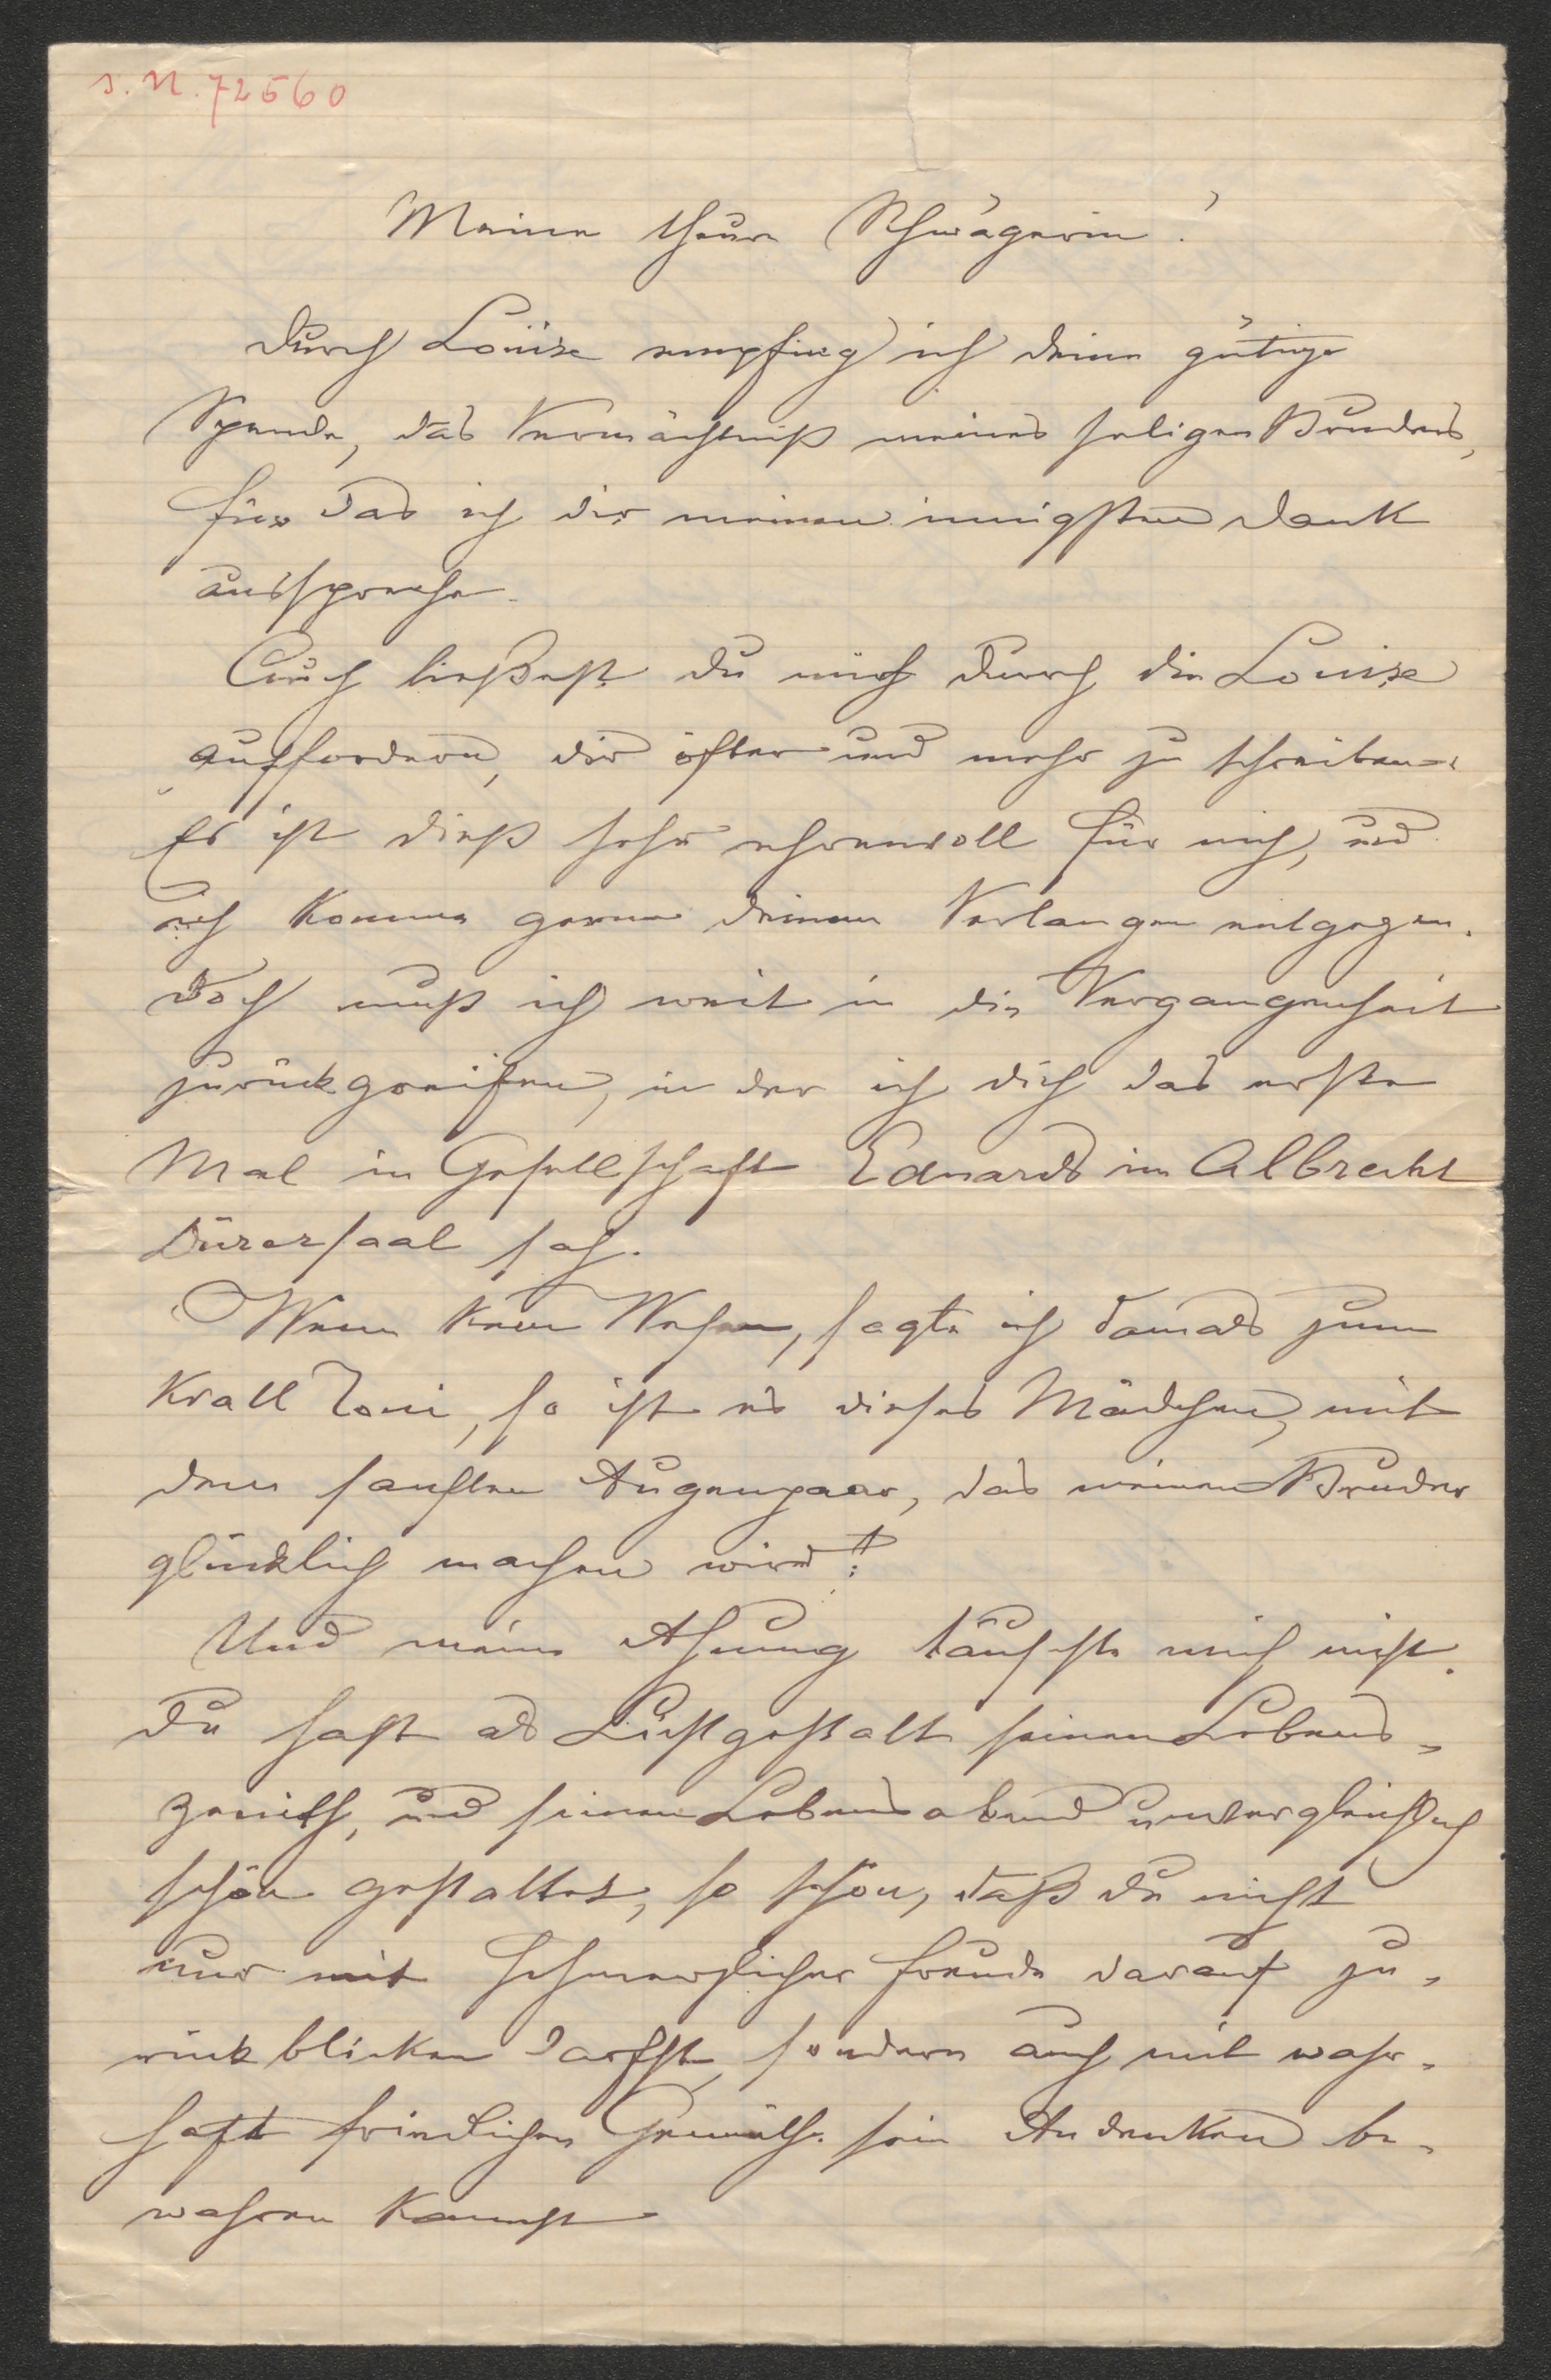 I. N. 72560
Meine theure Schwägerin!
Durch Louise empfing ich deine gütige
Spende, das Vermächtniß meines seligen Bruders,
für das ich dir meinen innigsten Dank
ausspreche.
Auch ließest du mich durch die Louise
auffordern, dir öfter und mehr zu schreiben.
Es ist dieß sehr ehrenvoll für mich, und
ich komme gerne deinem Verlangen entgegen.
Doch muß ich weit in die Vergangenheit
zurückgreifen, in der ich dich das erste
Mal in Gesellschaft Eduards im Albrecht
Dürersaal sah.
Wenn kein Wesen, sagte ich damals zum
Krall Toni, so ist es dieses Mädchen, mit
dem sanften Augenpaar, das meinen Bruder
glücklich machen wird!
Und meine Ahnung täuschte mich nicht.
Du hast als Lichtgestalt seinen Lebens-
zenith, und seinen Lebensabend unvergleichlich
schön gestaltet, so schön, daß du nicht
nur mit schmerzlicher Freude darauf zu-
rückblicken darfst, sondern auch mit wahr-
haft friedlichen Gemüthe sein Andenken be-
wahren kannst